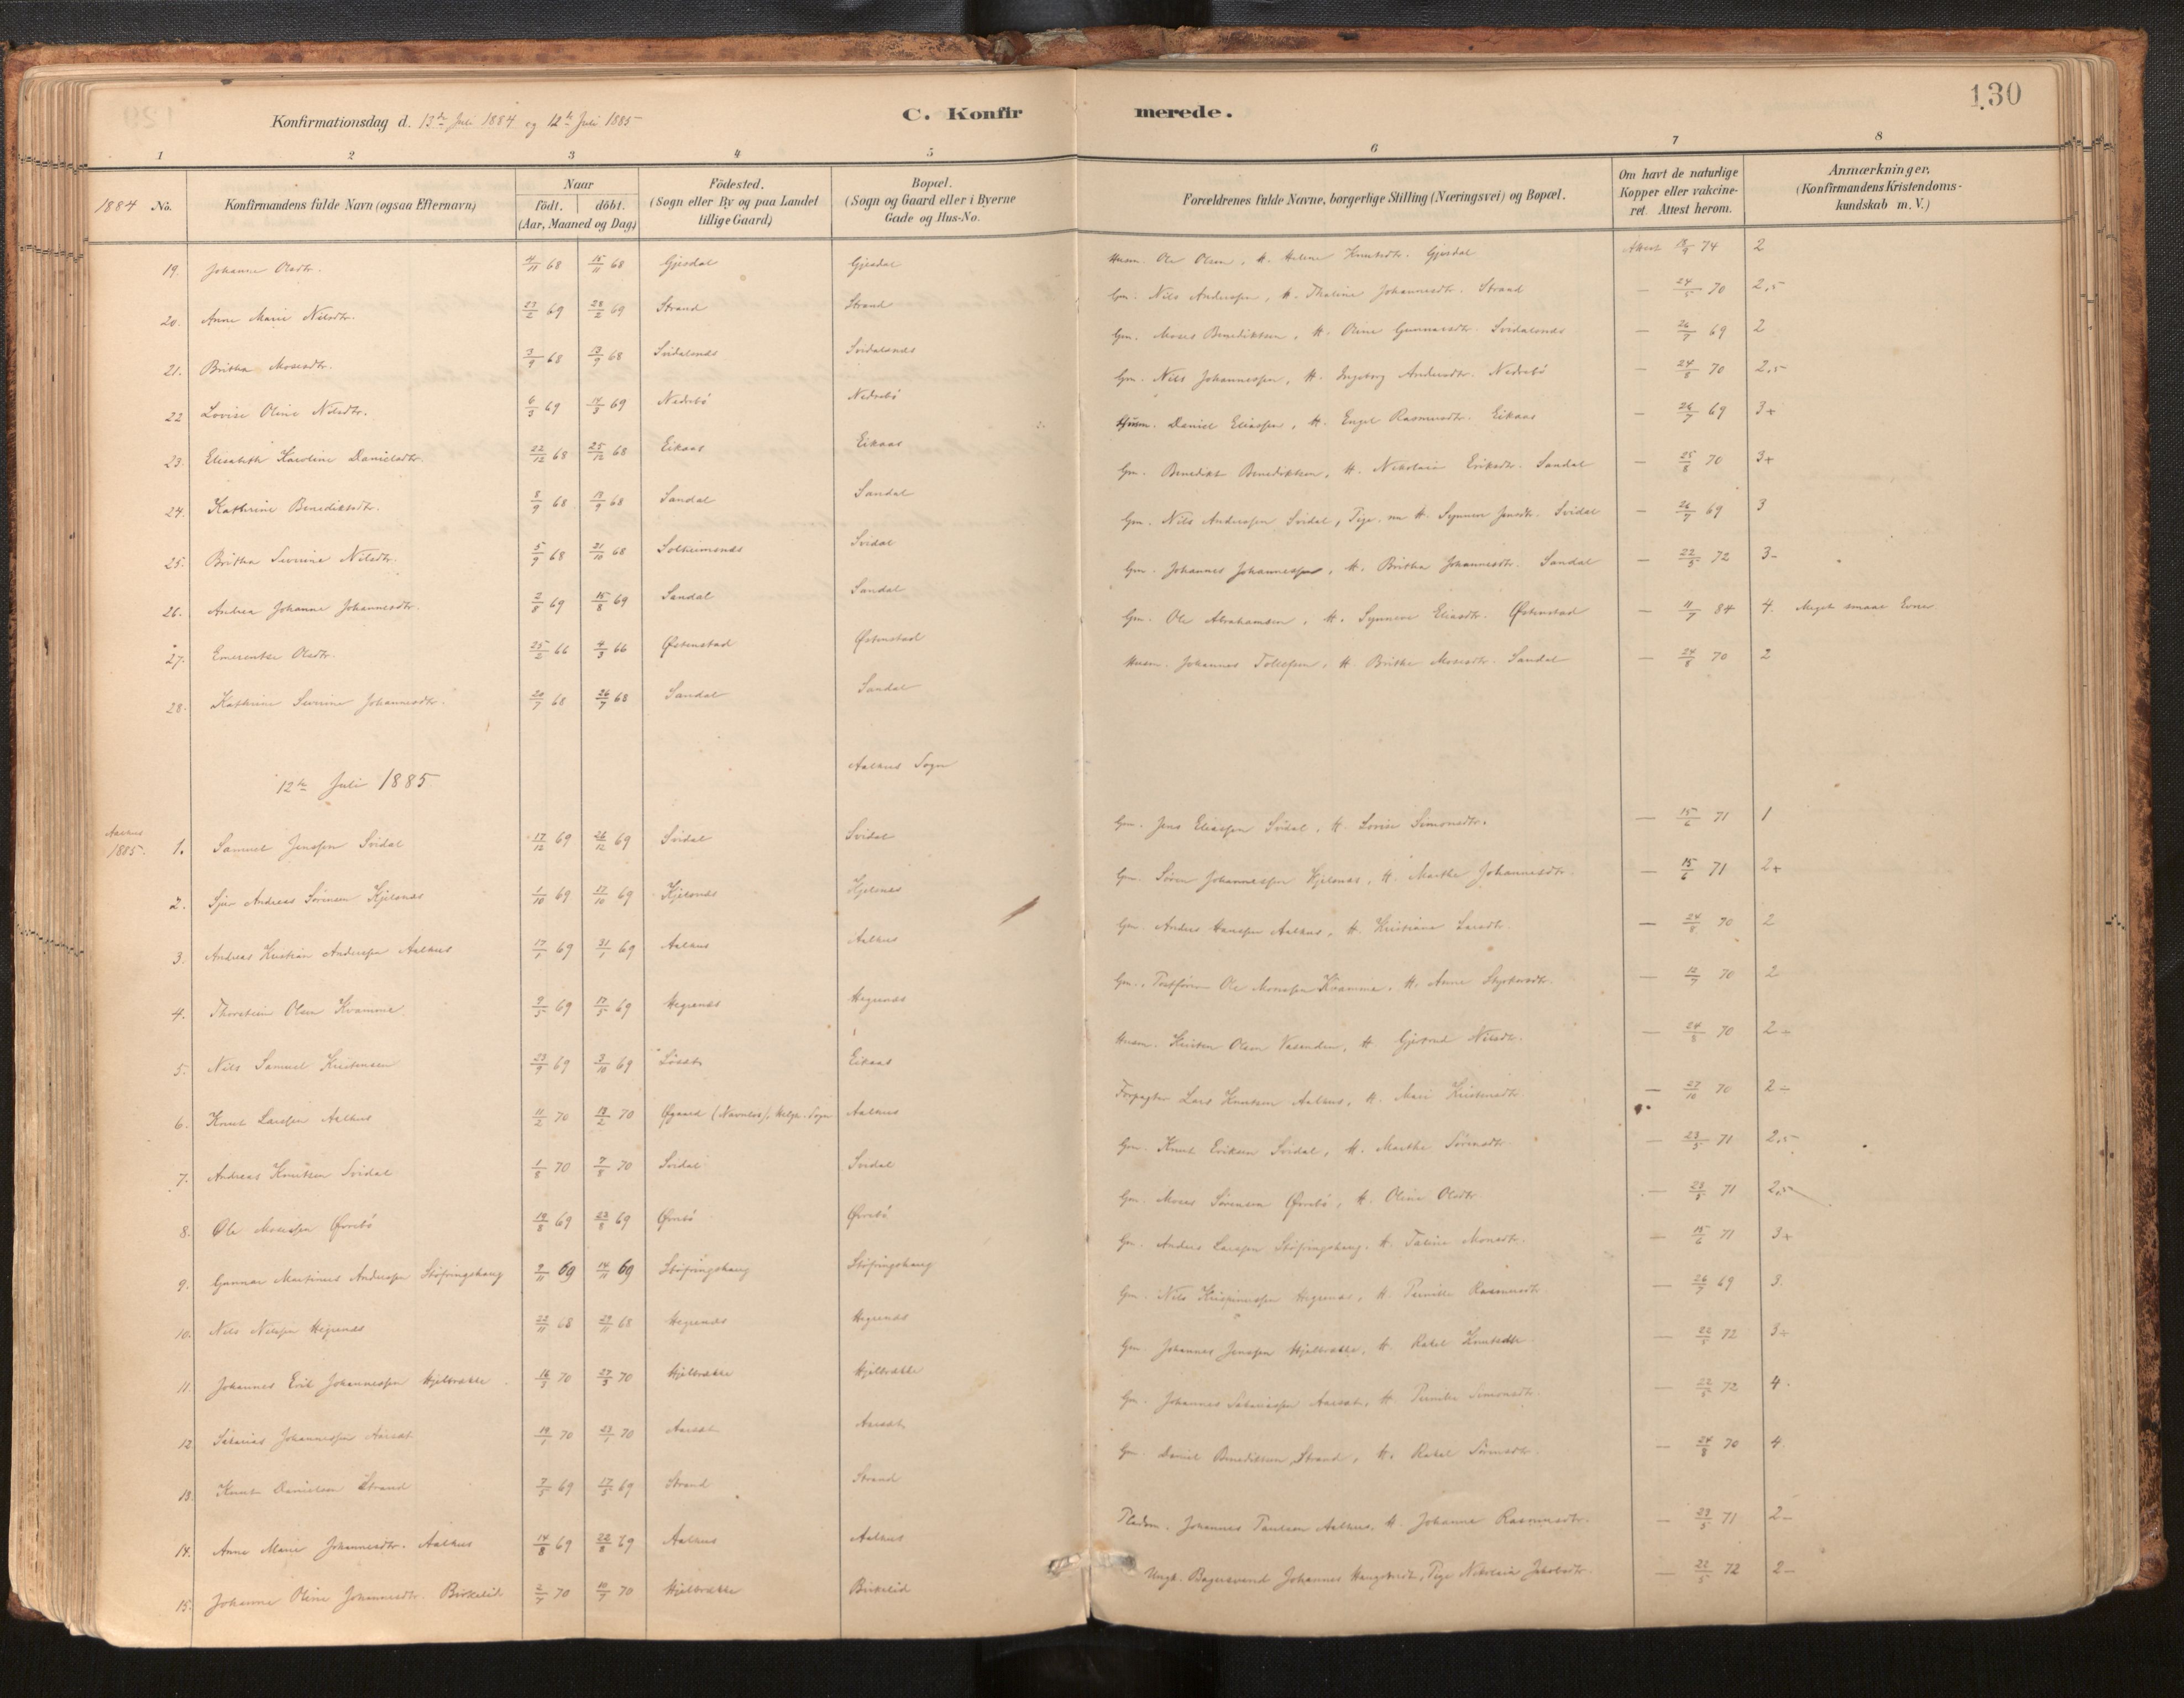 130
Konfirmationsdag d. 13de Juli 1884 og 12te Juli 1885
C. Konfirmerede.
1 2 3 4 5 6 7 8
1884 No. Konfirmandens fulde Navn (ogsaa Efternavn) Naar Födt. döbt. (Aar, Maaned og Dag) Födested. (Sogn eller By og paa Landet tillige Gaard) Bopæl. (Sogn og Gaard eller i Byerne Gade og Hus-No. Forældrenes fulde Navne, borgerlige Stilling (Næringsvei) og Bopæl. Om havt de naturlige Kopper eller vakcineret. Attest herom. Anmærkninger, (Konfirmandens Kristendomskundskab m. V.)
19. Johanne Olsdtr. 4/11 68 15/11 68 Gjesdal Gjesdal Husm. Ole Olsen, H. Helene Knutsdtr. Gjesdal Attest 74 2
20. Anne Marie Nilsdtr. 27/2 69 28/2 69 Strand Strand Gm. Nils Anderssen, H. Thaline Johannesdtr. Strand — 24/5 70 2,5
21. Britha Mosesdtr. 3/9 68 13/9 68 Svidalsnæs Svidalsnæs Gm. Moses Benediktsen, H. Oline Gunnarsdtr. Svidalsnæs — 26/7 69 2
22 Lovise Oline Nilsdtr. 6/3 69 14/3 69 Nedrebö Nedrebö Gm. Nils Johannessen, H. Ingeborg Andersdtr. Nedrebö — 24/8 70 2,5
23. Elisabeth Karoline Danielsdtr. 22/12 68 25/12 68 Eikaas Eikaas Husm. Daniel Eliassen, H. Engel Rasmusdtr. Eikaas — 26/7 69 3+
24. Kathrine Benediktsdtr. 8/9 68 13/9 68 Sandal Sandal Gm. Benedikt Benediktsen, H. Nikolaia Eriksdtr. Sandal — 25/8 70 3+
25. Britha Severine Nilsdtr. 5/9 68 21/10 68 Solheimsnæs Svidal Gm. Nils Anderssen Svidal, Pige. nu H. Synneve Jensdtr. Svidal — 26/7 69 3
26. Andrea Johanne Johannesdtr. 2/8 69 15/8 69 Sandal Sandal Gm. Johannes Johannessen, H. Britha Johannesdtr. Sandal — 22/5 72 3-
27. Emerentse Olsdtr. 25/2 66 4/3 66 Østenstad Østenstad Gm. Ole Abrahamsen, H. Synneve Eliasdtr. Østenstad — 11/7 84 4. Meget smaae Evner
28. Kathrine Severine Johannesdtr. 20/7 68 26/7 68 Sandal Sandal Husm. Johannes Tollefsen, H. Brithe Mosesdtr. Sandal — 24/8 70 2
12te Juli 1885 Aalhus Sogn
Aalhus 1885. 1. Samuel Jenssen Svidal 17/12 69 26/12 69 Svidal Svidal Gm. Jens Eliassen Svidal, H. Lovise Simonsdtr. — 15/6 71 1
2. Sjur Andreas Sörensen Kjelsnæs 1/10 69 17/10 69 Kjelsnæs Kjelsnæs Gm. Sören Johannessen Kjelsnæs, H. Marthe Johannesdtr. — 15/6 71 2+
3. Andreas Kristian Anderssen Aalhus 17/1 69 31/1 69 Aalhus Aalhus Gm. Anders Hanssen Aalhus, H. Kristiana Larsdtr. — 24/8 70 2
4. Thorstein Olsen Kvamme 9/5 69 17/5 69 Hegrenæs Hegrenæs Gm., Postförer Ole Monssen Kvamme, H. Anne Styrkersdtr. — 12/7 70 2
5. Nils Samuel Kristensen 23/9 69 3/10 69 Löset Eikaas Husm. Kristen Olsen Vasenden, H. Gjertrud Nilsdtr. — 24/8 70 2-
6. Knut Larssen Aalhus 11/2 70 13/2 70 Øgaard (Navnlös), Helgh. Sogn Aalhus Forpagter Lars Knutsen Aalhus, H. Mari Kristensdtr. — 27/10 70 2-
7. Andreas Knutsen Svidal 1/8 70 7/8 70 Svidal Svidal Gm. Knut Eriksen Svidal, H. Marthe Sörensdtr. — 23/5 71 2,5
8. Ole Mosessen Øvrebö 19/8 69 22/8 69 Øvrebö Øvrebö Gm. Moses Sörensen Øvrebö, H. Oline Olsdtr. — 23/5 71 2,5
9. Gunnar Martinus Anderssen Stöfringshaug 9/11 69 14/11 69 Stöfringshaug Stöfringshaug Gm. Anders Larssen Stöfringshaug, H. Taline Monsdtr. — 15/6 71 3+
10. Nils Nilssen Hegrenæs 22/11 68 29/11 68 Hegrenæs Hegrenæs Gm. Nils Krispinussen Hegrenæs, H. Pernille Rasmusdtr. — 26/7 69 3
11. Johannes Erik Johannessen Hjelbrække 16/3 70 27/3 70 Hjelbrække Hjelbrække Gm. Johannes Jenssen Hjelbrække, H. Rakel Knutsdtr. — 22/5 72 3+
12 Sakarias Johannessen Aarset 19/1 70 23/1 70 Aarset Aarset Gm. Johannes Sakariassen Aarset, H. Pernille Simonsdtr. — 22/5 72 4.
13. Knut Danielsen Strand 7/5 69 17/5 69 Strand Strand Gm. Daniel Benediktsen Strand, H. Rakel Sörensdtr. — 24/8 70 4
14. Anne Marie Johannesdtr. Aalhus 14/8 69 22/8 69 Aalhus Aalhus Pladsm. Johannes Paulsen Aalhus, H. Johanne Rasmusdtr. — 23/5 71 2-
15. Johanne Oline Johannesdtr. Birkelid 2/7 70 10/7 70 Hjelbrække Birkelid Ungk. Bagersvend Johannes Haugstvedt, Pige Nikolaia Jakobsdtr. — 22/5 72 2-